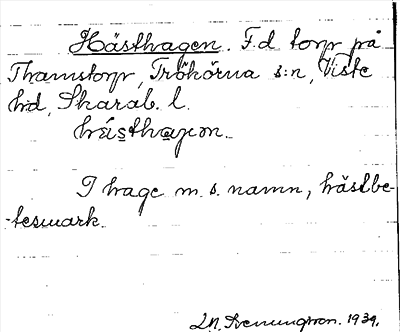 Hästhagen. F.d. torp på
Thamstorp, Trökörna s:n, Viste
hd, Skarab. l.
hästhagen.
I hage m. s. namn, hästbe-
tesmark.
1939.